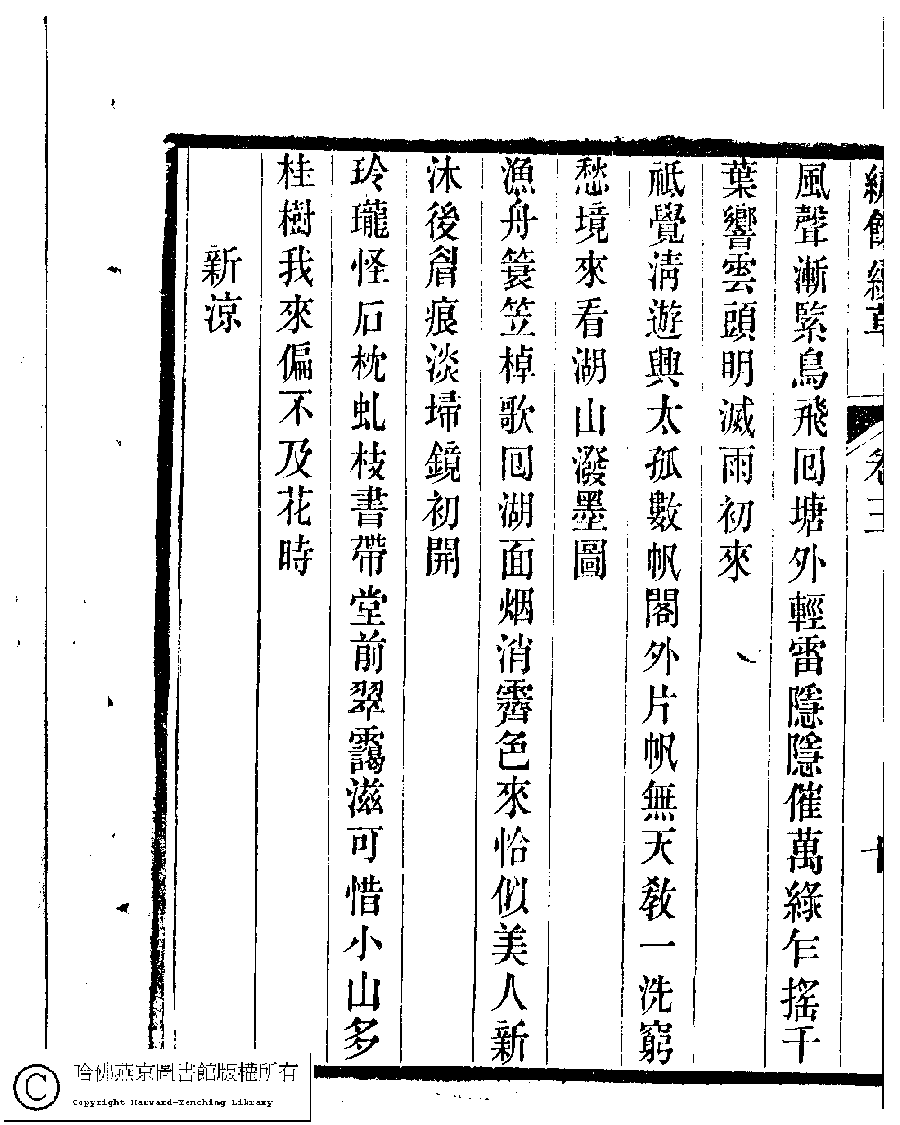 續草
卷三
十
風聲漸緊鳥飛囘塘外輕雷隱隱催萬綠乍搖千
葉響雲頭明滅雨初來
祗覺清遊興太孤數帆閣外片帆無天敎一洗窮
愁境來看湖山潑墨圖
漁舟簑笠棹歌囘湖面烟消霽色來恰似美人新
沐後眉痕淡埽鏡初開
玲瓏怪石枕虬枝書帶堂前翠靄滋可惜小山多
桂樹我來偏不及花時
新涼
哈佛燕京圖書館版權所有
Copyright Harvard-Yenching Library